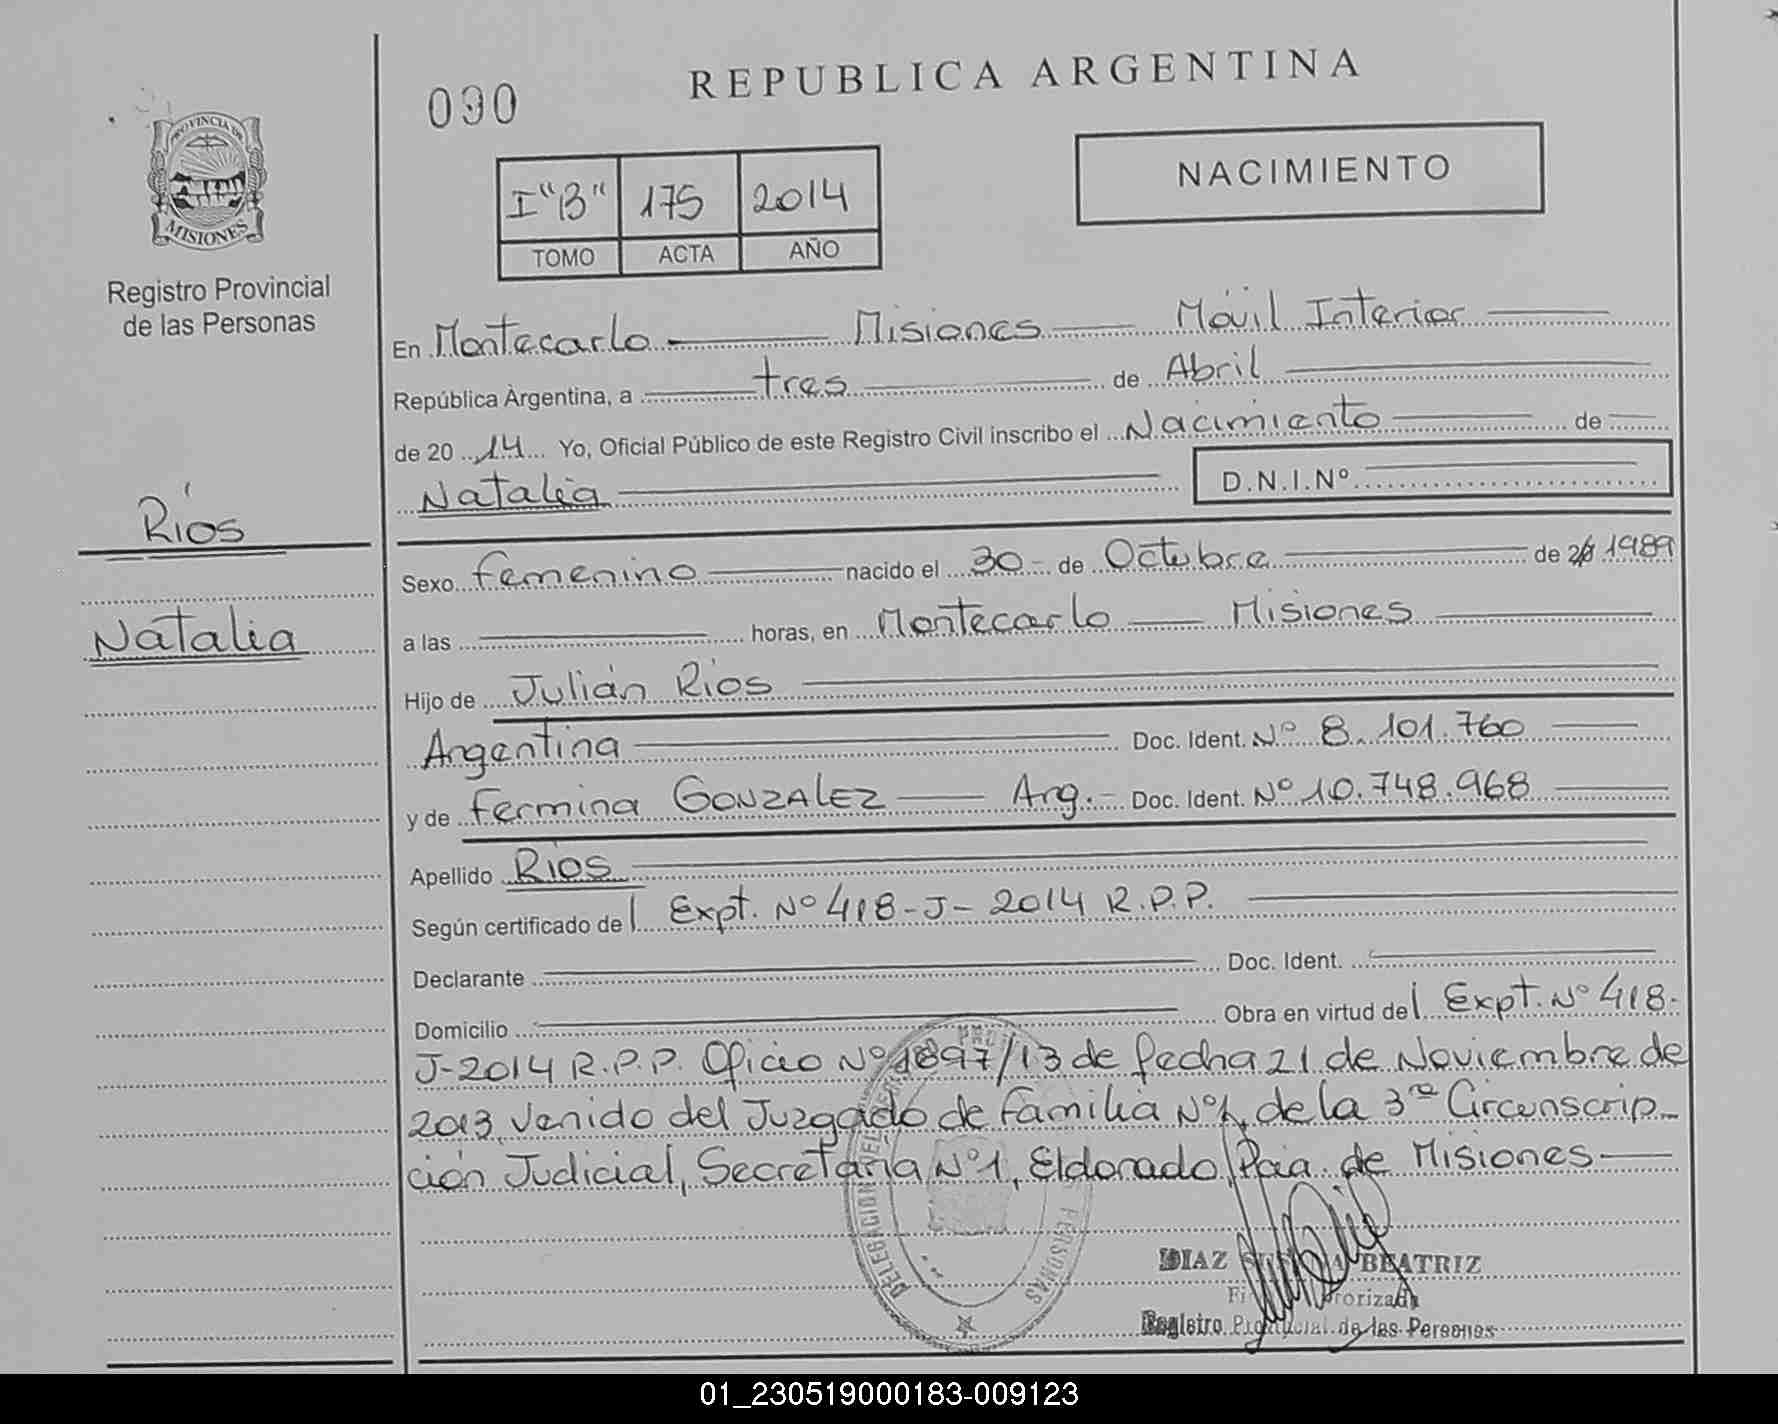 REPUBLICA ARGENTINA
090
NACIMIENTO
I "B" 175 2014
TOMO ACTA AÑO
PROVINCIA DE
MISIONES
Registro Provincial
de las Personas
Ríos
Natalia
En Montecarlo Misiones Móvil Interior
República Argentina, a tres de Abril
de 20 14 Yo, Oficial Público de este Registro Civil inscribo el Nacimiento de
Natalia D.N.I.Nº
Sexo femenino nacido el 30 - de Octubre de 1989
a las horas, en Montecarlo Misiones
Hijo de Julián Ríos
Argentina Doc. Ident. Nº 8.101.760
y de Fermina GONZALEZ Arg. - Doc. Ident. Nº 10.748.968
Apellido Ríos
Según certificado del Expt. Nº 418-J-2014 R.P.P.
Declarante Doc. Ident.
Domicilio Obra en virtud del Expt. Nº 418-
J-2014 R.P.P. Oficio Nº 1897/13 de fecha 21 de Noviembre de
2013, venido del Juzgado de Familia Nº1, de la 3ra Circunscrip-
ción Judicial, Secretaría Nº1, Eldorado, Pcia. de Misiones
DELEGACION
PERSONAS
DIAZ BEATRIZ
Registro Provincial de las Personas
01_230519000183-009123